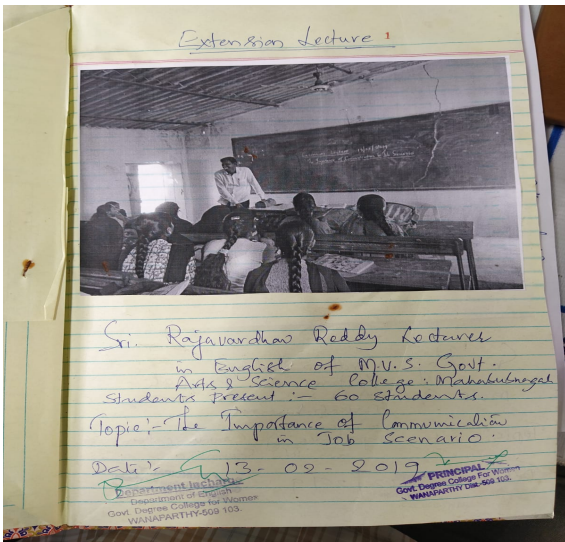 Extension Lecture 1
Sri. Rajavardhan Reddy Lectures
in English of M.V.S. Govt.
Arts & Science College: Mahabubnagar
Students Present :- 60 Students.
Topic:- The Importance of Communication
in Job Scenario.
Date:- 13-02-2019
Department Incharge
Department of English
Govt. Degree College for Women
WANAPARTHY-509 103.
PRINCIPAL
Govt. Degree College For Women
WANAPARTHY Dist.-509 103.